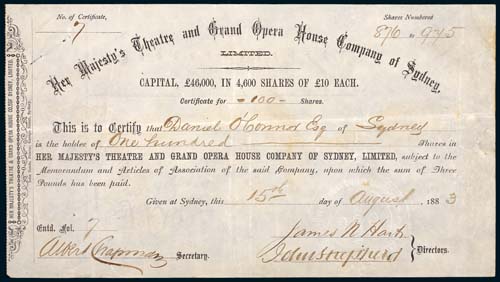 No. of Certificate,
7
Shares Numbered
876 to 975
Her Majesty's Theatre and Grand Opera House Company of Sydney,
LIMITED.
CAPITAL, £46,000, IN 4,600 SHARES OF £10 EACH.
Certificate for -100- Shares.
This is to Certify that Daniel O'Connor Esq of Sydney
is the holder of One hundred Shares in
HER MAJESTY'S THEATRE AND GRAND OPERA HOUSE COMPANY OF SYDNEY, LIMITED, subject to the
Memorandum and Articles of Association of the said Company, upon which the sum of Three
Pounds has been paid.
Given at Sydney, this 15th day of August 1883
Entd. Fol. 7
Albert Chapman Secretary.
James N Hart
John Shepherd
Directors.
HER MAJESTY'S THEATRE & GRAND OPERA HOUSE COMPY OF SYDNEY, LIMITED.